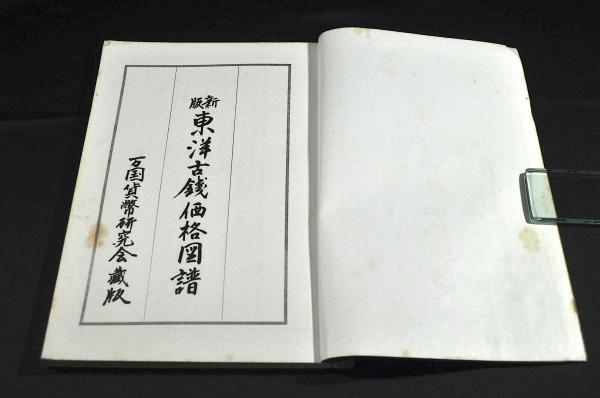 新版 東洋古銭価格図譜
万国貨幣研究会蔵版